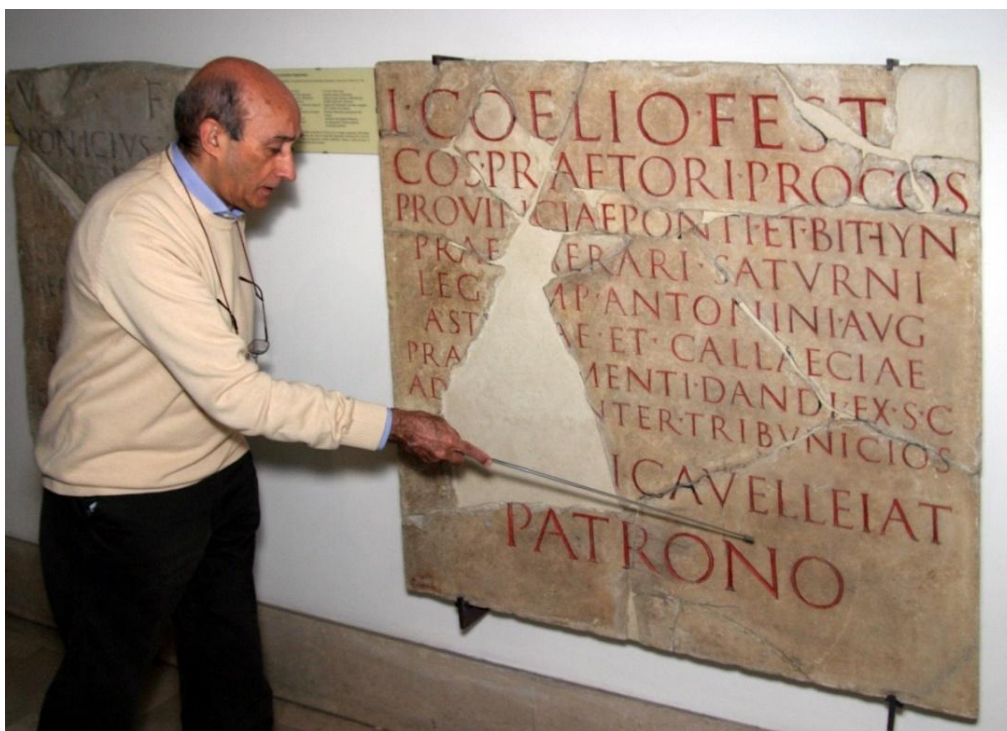 V F
PONICIVS
I·COELIO·FEST
COS·PRAETORI·PROCOS
PROVINCIAE PONTI·ET·BITHYN
PRAE ERARI·SATVRNI
LEG MP·ANTONINI·AVG
AST AE·ET·CALLAECIAE
PRA MENTI·DANDI·EX·S·C
AD NTER·TRIBVNICIOS
ICAVELLEIAT
PATRONO